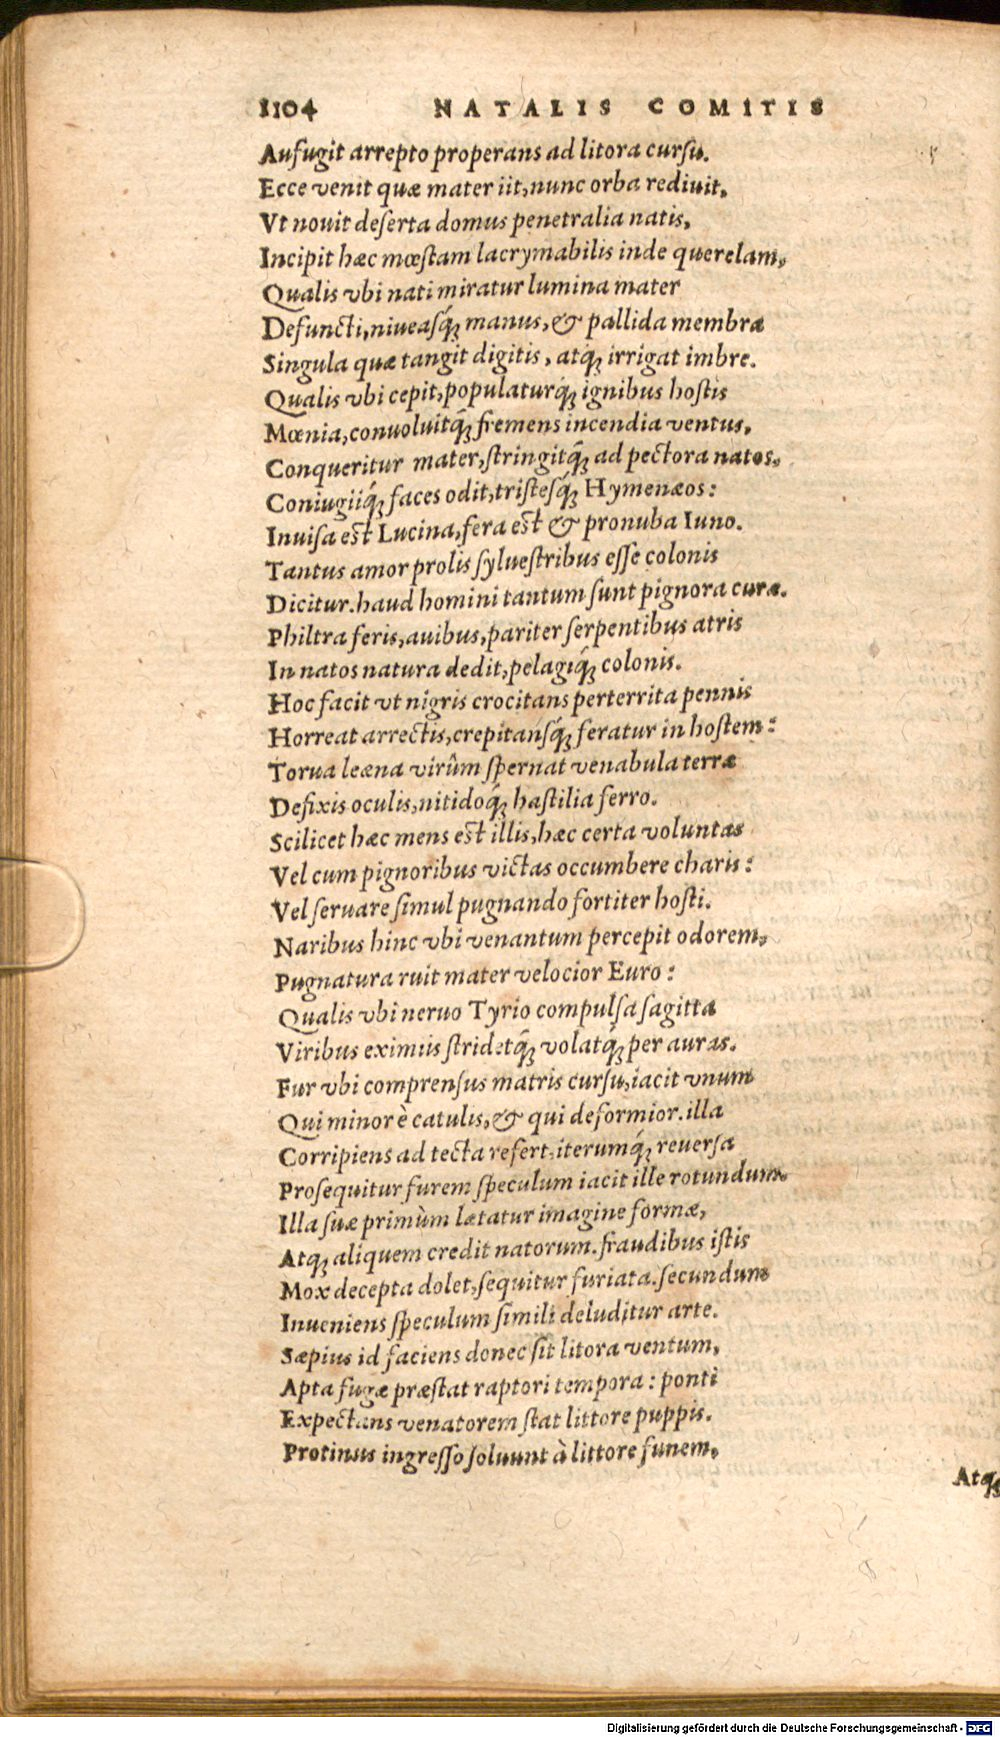 1104 NATALIS COMITIS
Aufugit arrepto properans ad litora cursu.
Ecce venit quæ mater iit, nunc orba rediuit,
Vt nouit deserta domus penetralia natis,
Incipit hæc mœstam lacrymabilis inde querelam,
Qualis vbi nati miratur lumina mater
Defuncti, niueasq́; manus, & pallida membra
Singula quæ tangit digitis, atq; irrigat imbre.
Qualis vbi cepit, populaturq́; ignibus hostis
Mœnia, conuoluitq́; fremens incendia ventus,
Conqueritur mater, stringitq́; ad pectora natos,
Coniugiiq́; faces odit, tristesq́; Hymenæos:
Inuisa est Lucina, fera est & pronuba Iuno.
Tantus amor prolis syluestribus esse colonis
Dicitur. haud homini tantum sunt pignora curæ.
Philtra feris, auibus, pariter serpentibus atris
In natos natura dedit, pelagiq́; colonis.
Hoc facit vt nigris crocitans perterrita pennis
Horreat arrectis, crepitansq́; feratur in hostem:
Torua leæna virûm spernat venabula terræ
Defixis oculis, nitidoq́; hastilia ferro.
Scilicet hæc mens est illis, hæc certa voluntas
Vel cum pignoribus victas occumbere charis:
Vel seruare simul pugnando fortiter hosti.
Naribus hinc vbi venantum percepit odorem,
Pugnatura ruit mater velocior Euro:
Qualis vbi neruo Tyrio compulsa sagitta
Viribus eximiis stridetq́; volatq́; per auras.
Fur vbi comprensus matris cursu, iacit vnum
Qui minor è catulis, & qui deformior. illa
Corripiens ad tecta refert, iterumq́; reuersa
Prosequitur furem speculum iacit ille rotundum.
Illa suæ primùm lætatur imagine formæ,
Atq; aliquem credit natorum. fraudibus istis
Mox decepta dolet, sequitur furiata. secundum
Inueniens speculum simili deluditur arte.
Sæpius id faciens donec sit litora ventum,
Apta fugæ præstat raptori tempora: ponti
Expectans venatorem stat littore puppis.
Protinus ingresso soluunt à littore funem,
Atq;
Digitalisierung gefördert durch die Deutsche Forschungsgemeinschaft - DFG